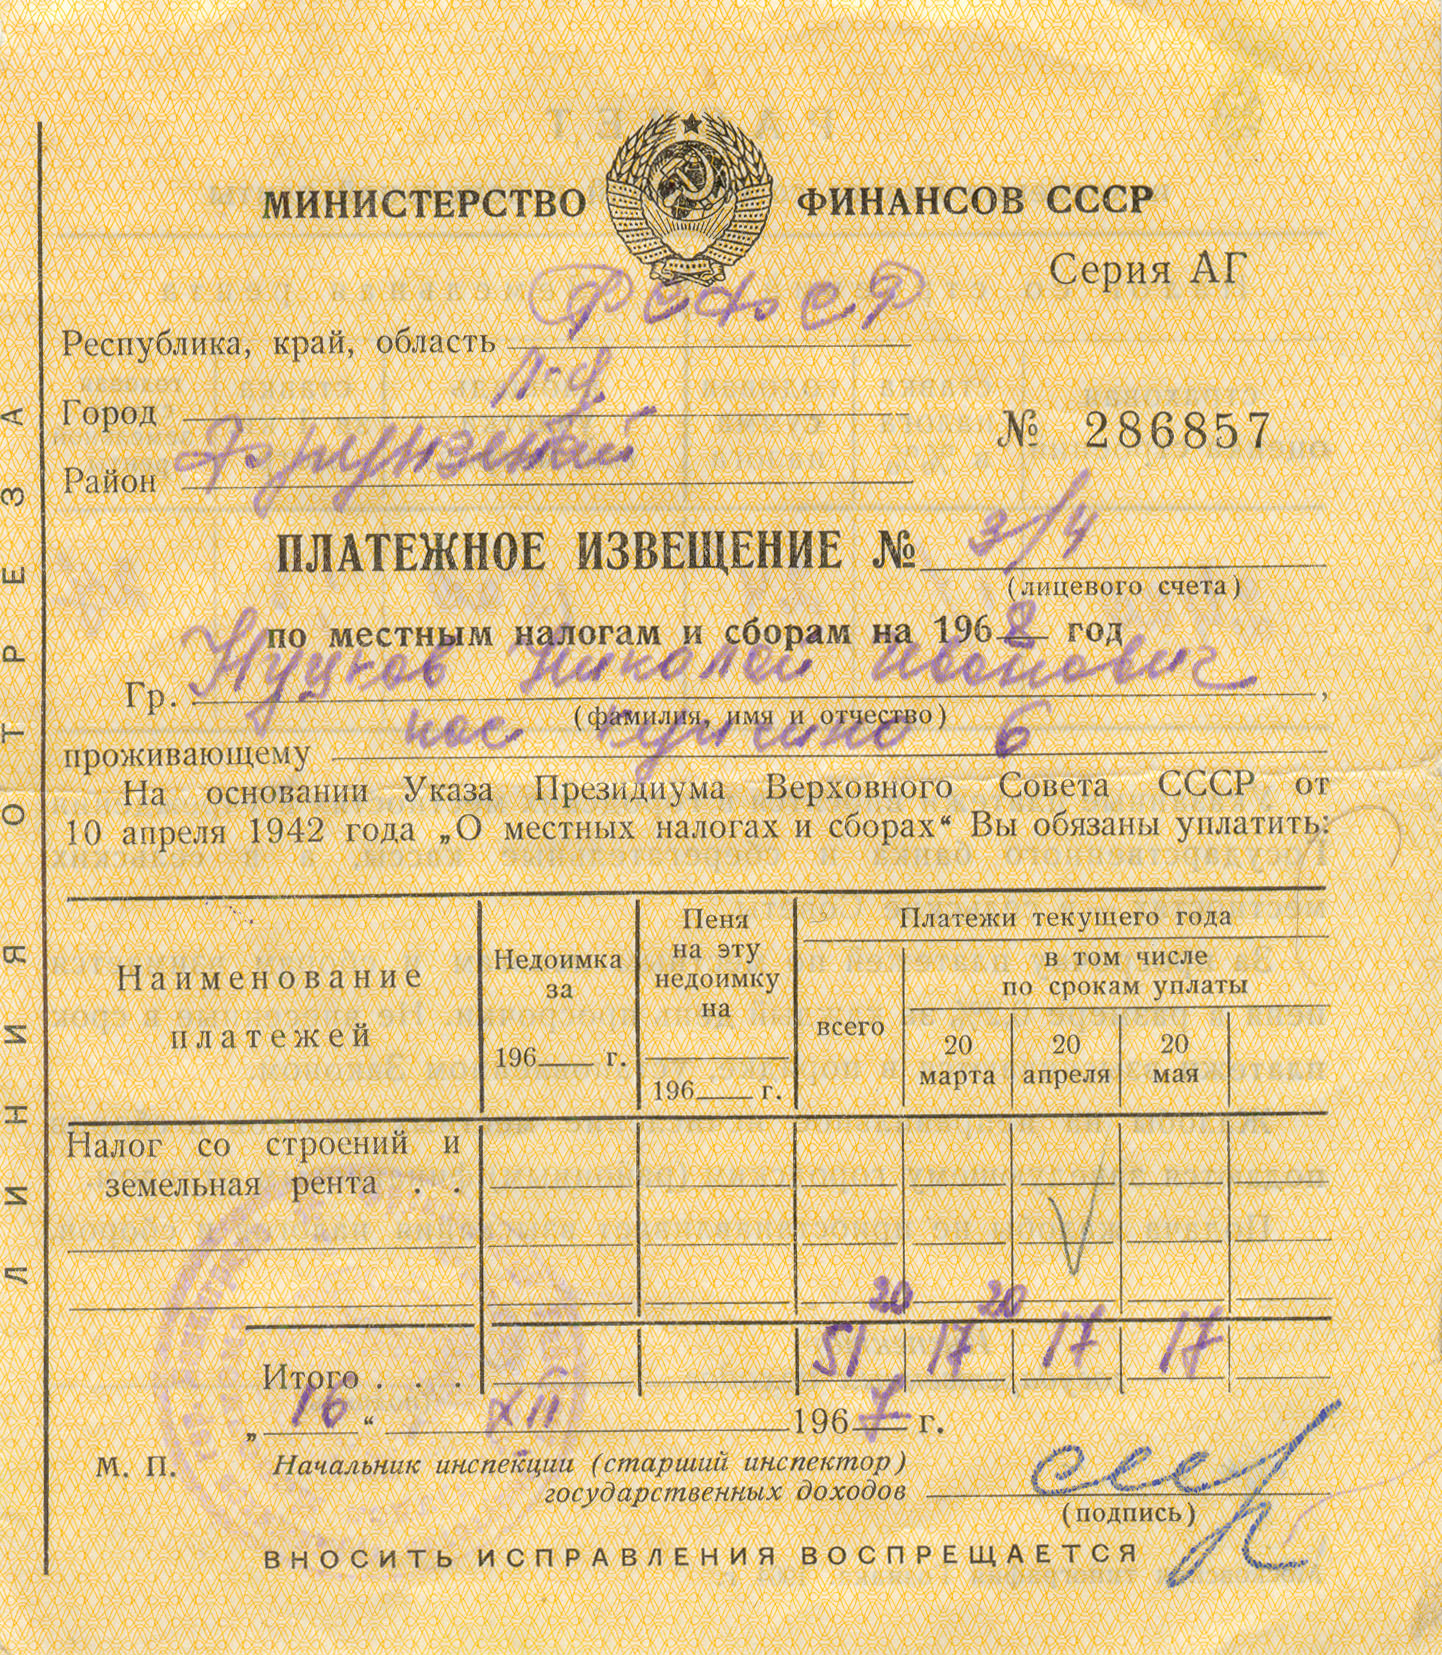 МИНИСТЕРСТВО ФИНАНСОВ СССР
Серия АГ
Республика, край, область РСФСР
Город Л-д
№ 286857
Район Фрунзенский
ПЛАТЕЖНОЕ ИЗВЕЩЕНИЕ № 3/4
(лицевого счета)
по местным налогам и сборам на 1968 год
Гр. Николай Иванович,
(фамилия, имя и отчество)
проживающему пос Купчино 6
На основании Указа Президиума Верховного Совета СССР от
10 апреля 1942 года „О местных налогах и сборах“ Вы обязаны уплатить:
Наименование платежей
Недоимка за 196 г.
Пеня на эту недоимку на 196 г.
Платежи текущего года
всего
в том числе по срокам уплаты
20 марта
20 апреля
20 мая
Налог со строений и
земельная рента . .
Итого . . . 51 20 17 20 17 17
„16“ XII 1967 г.
М. П.
Начальник инспекции (старший инспектор)
государственных доходов
(подпись)
ВНОСИТЬ ИСПРАВЛЕНИЯ ВОСПРЕЩАЕТСЯ
ЛИНИЯ ОТРЕЗА